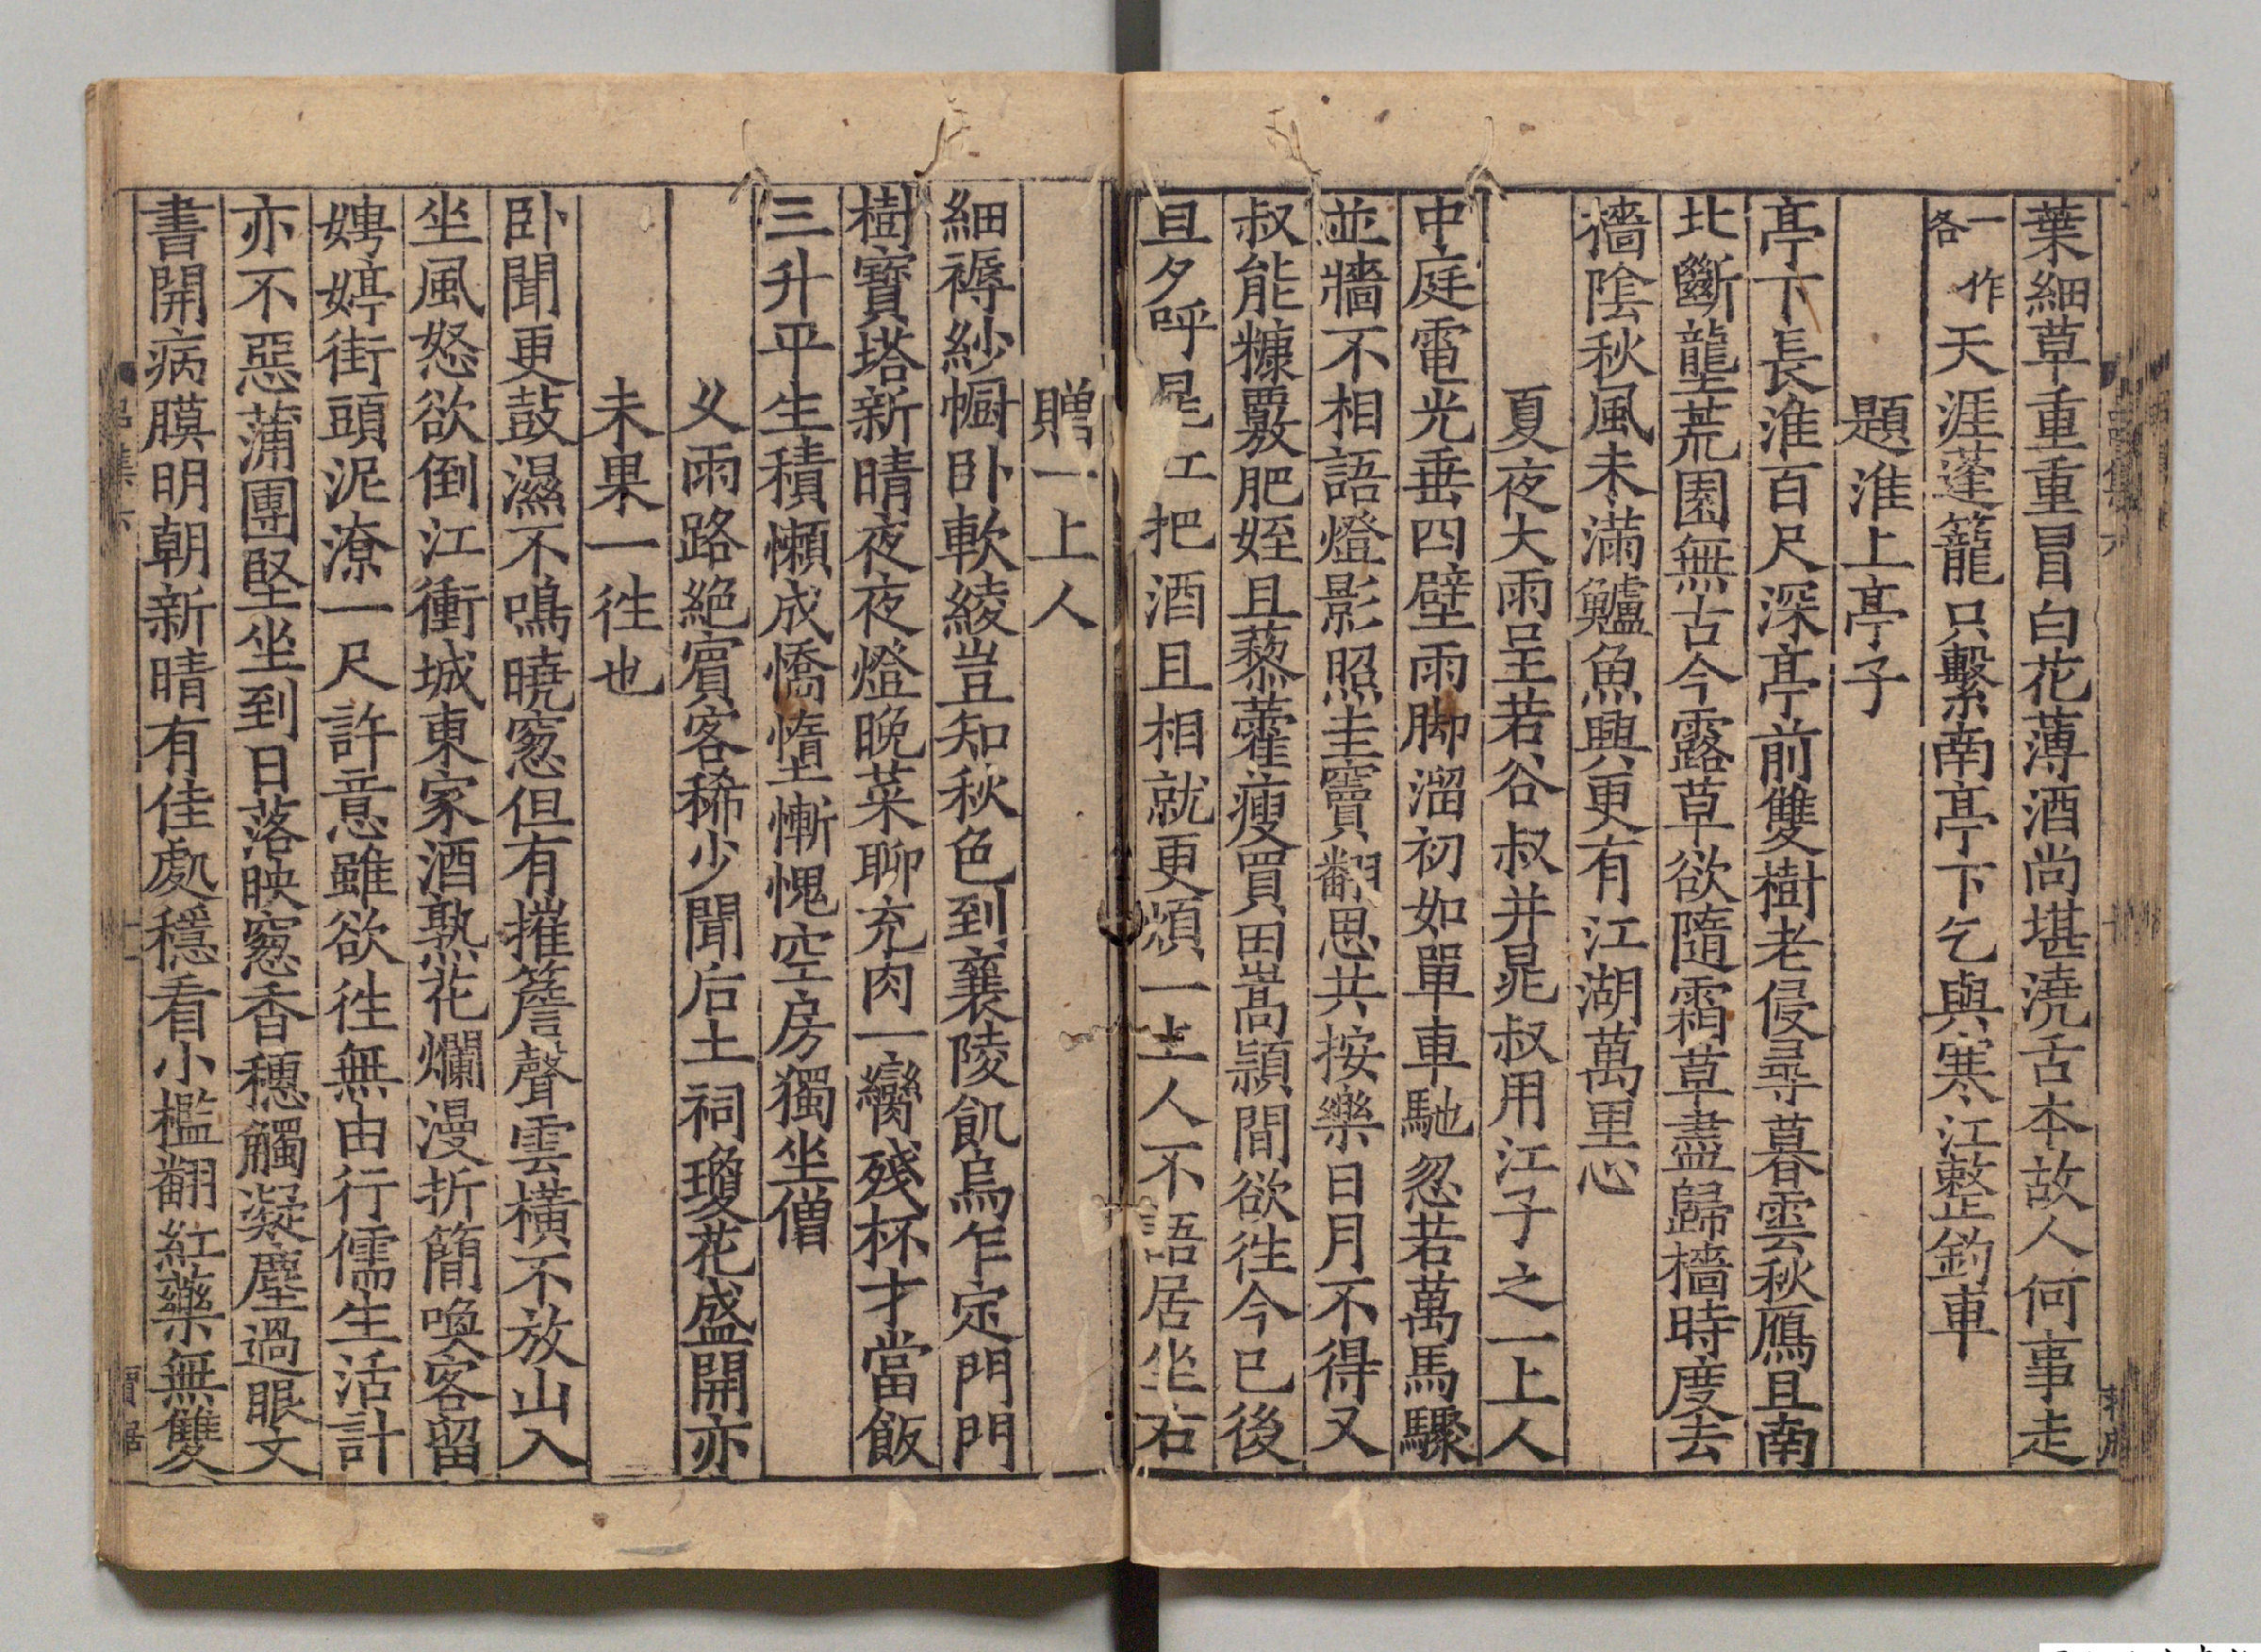 葉細草重重冒白花薄酒尚堪澆舌本故人何事走
一作各天涯蓬籠只繫南亭下乞與寒江整釣車
題淮上亭子
亭下長淮百尺深亭前雙樹老侵尋暮雲秋鴈且南
北斷壟荒園無古今露草欲隨霜草盡歸檣時度去
檣陰秋風未滿鱸魚興更有江湖萬里心
夏夜大雨呈若谷叔并晁叔用江子之一上人
中庭電光垂四壁雨脚溜初如單車馳忽若萬馬驟
並牆不相語燈影照圭竇翻思共按樂日月不得又
叔能糠覈肥姪且藜藿瘦買田嵩潁間欲徃今已後
且夕呼晁江把酒且相就更煩一上人不語居坐右
贈一上人
細褥紗㡡卧軟綾豈知秋色到襄陵飢烏乍定門門
樹寶塔新晴夜夜燈晚菜聊充肉一臠殘杯才當飯
三升平生積懶成憍惰慚愧空房獨坐僧
乆雨路絶賔客稀少聞后土祠瓊花盛開亦
未果一徃也
卧聞更鼓濕不鳴曉窓但有摧簷聲雲橫不放山入
坐風怒欲倒江衝城東家酒熟花爛漫折簡喚客留
娉婷街頭泥潦一尺許意雖欲徃無由行儒生活計
亦不惡蒲團堅坐到日落映窓香穗觸凝塵過眼文
書開病膜明朝新晴有佳處穩看小檻翻紅藥無雙